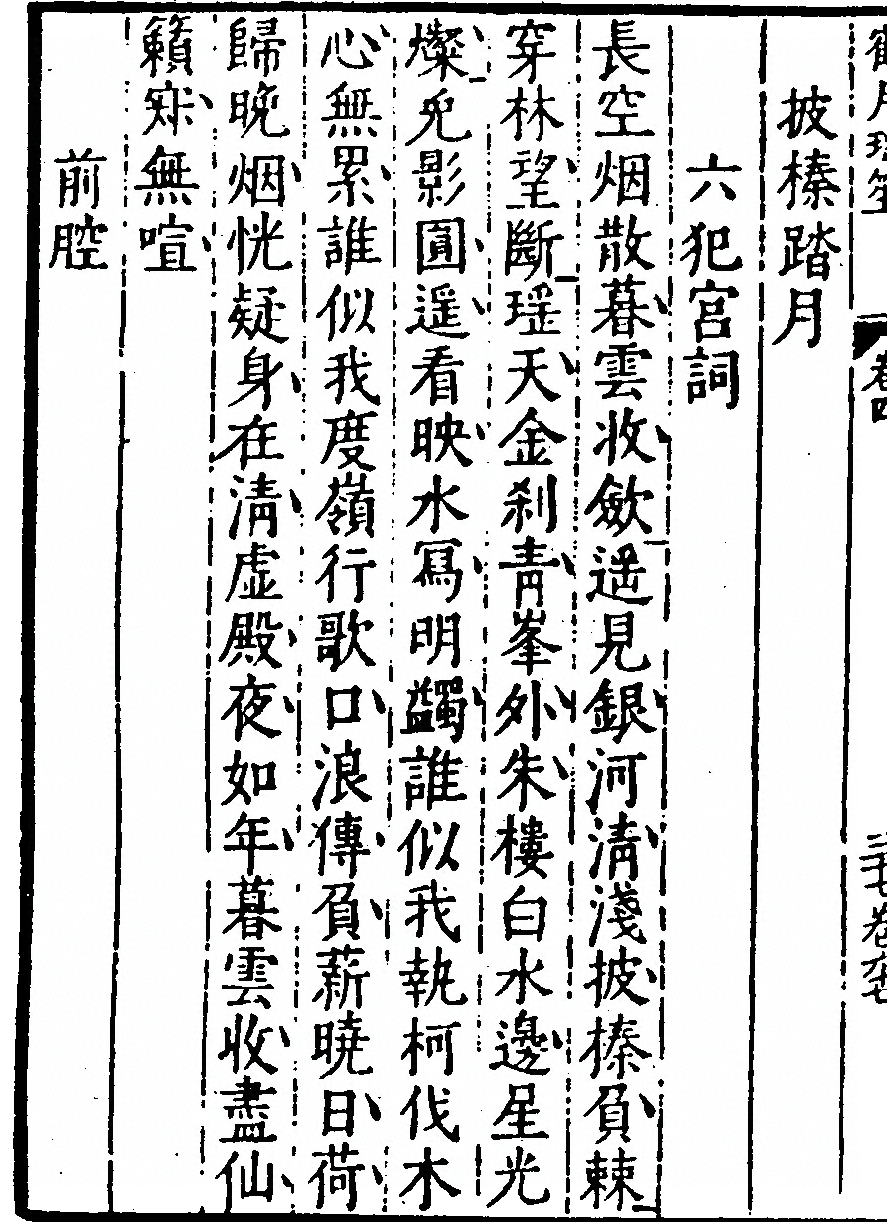 鶴月瑤笙 卷四
披榛踏月
六犯宮詞
長空烟散暮雲收斂遥見銀河清淺披榛負棘
穿林望斷瑶天金刹青峯外朱樓白水邊星光
燦皃影圓遥看映水冩明蠲誰似我執柯伐木
心無累誰似我度嶺行歌口浪傳負薪曉日荷
歸晚烟恍疑身在清虛殿夜如年暮雲收盡仙
籟㝛無喧
前腔